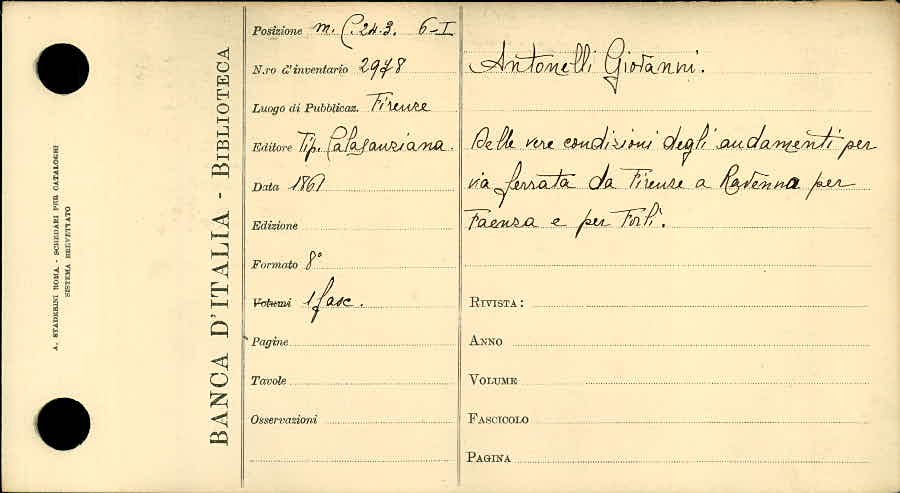 A. STADERINI ROMA - SCHEDARI PER CATALOGHI
SISTEMA BREVETTATO
BANCA D'ITALIA - BIBLIOTECA
Posizione m. C. 24.3. 6-I
N.ro d'inventario 2978
Luogo di Pubblicaz. Firenze
Editore Tip. Calasanziana.
Data 1861
Edizione
Formato 8°
Volumi 1 fasc.
Pagine
Tavole
Osservazioni
Antonelli Giovanni.
Delle vere condizioni degli andamenti per
via ferrata da Firenze a Ravenna per
Faenza e per Forlì.
RIVISTA:
ANNO
VOLUME
FASCICOLO
PAGINA